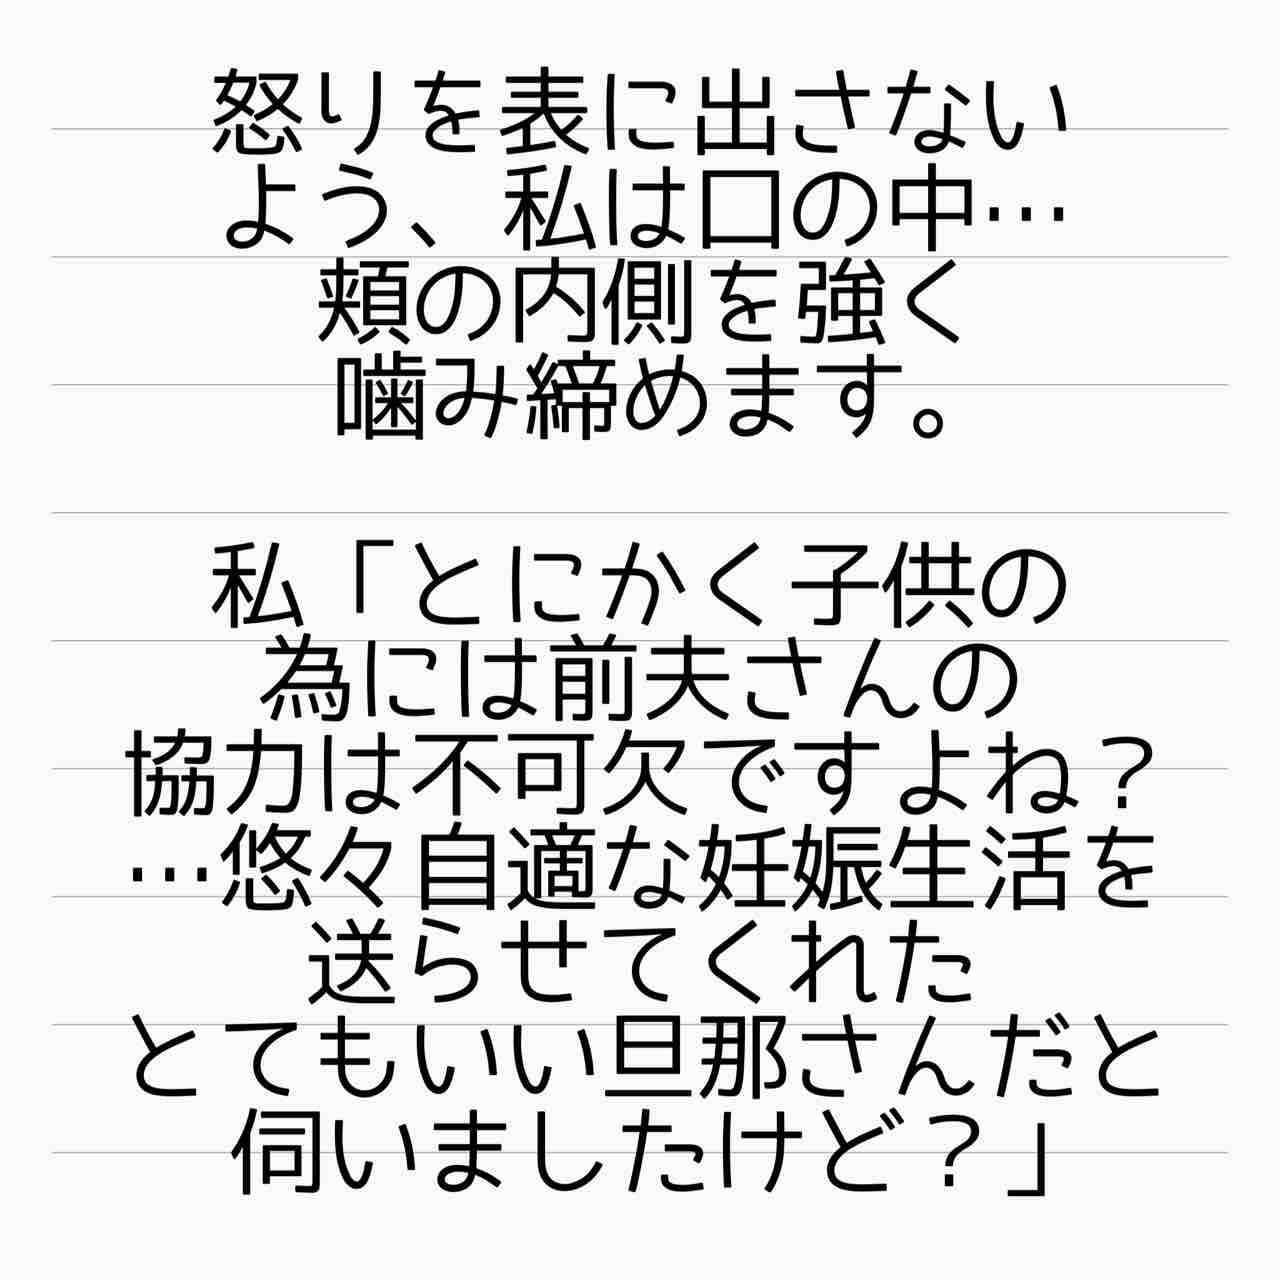 怒りを表に出さない
よう、私は口の中…
頬の内側を強く
噛み締めます。
私「とにかく子供の
為には前夫さんの
協力は不可欠ですよね？
…悠々自適な妊娠生活を
送らせてくれた
とてもいい旦那さんだと
伺いましたけど？」